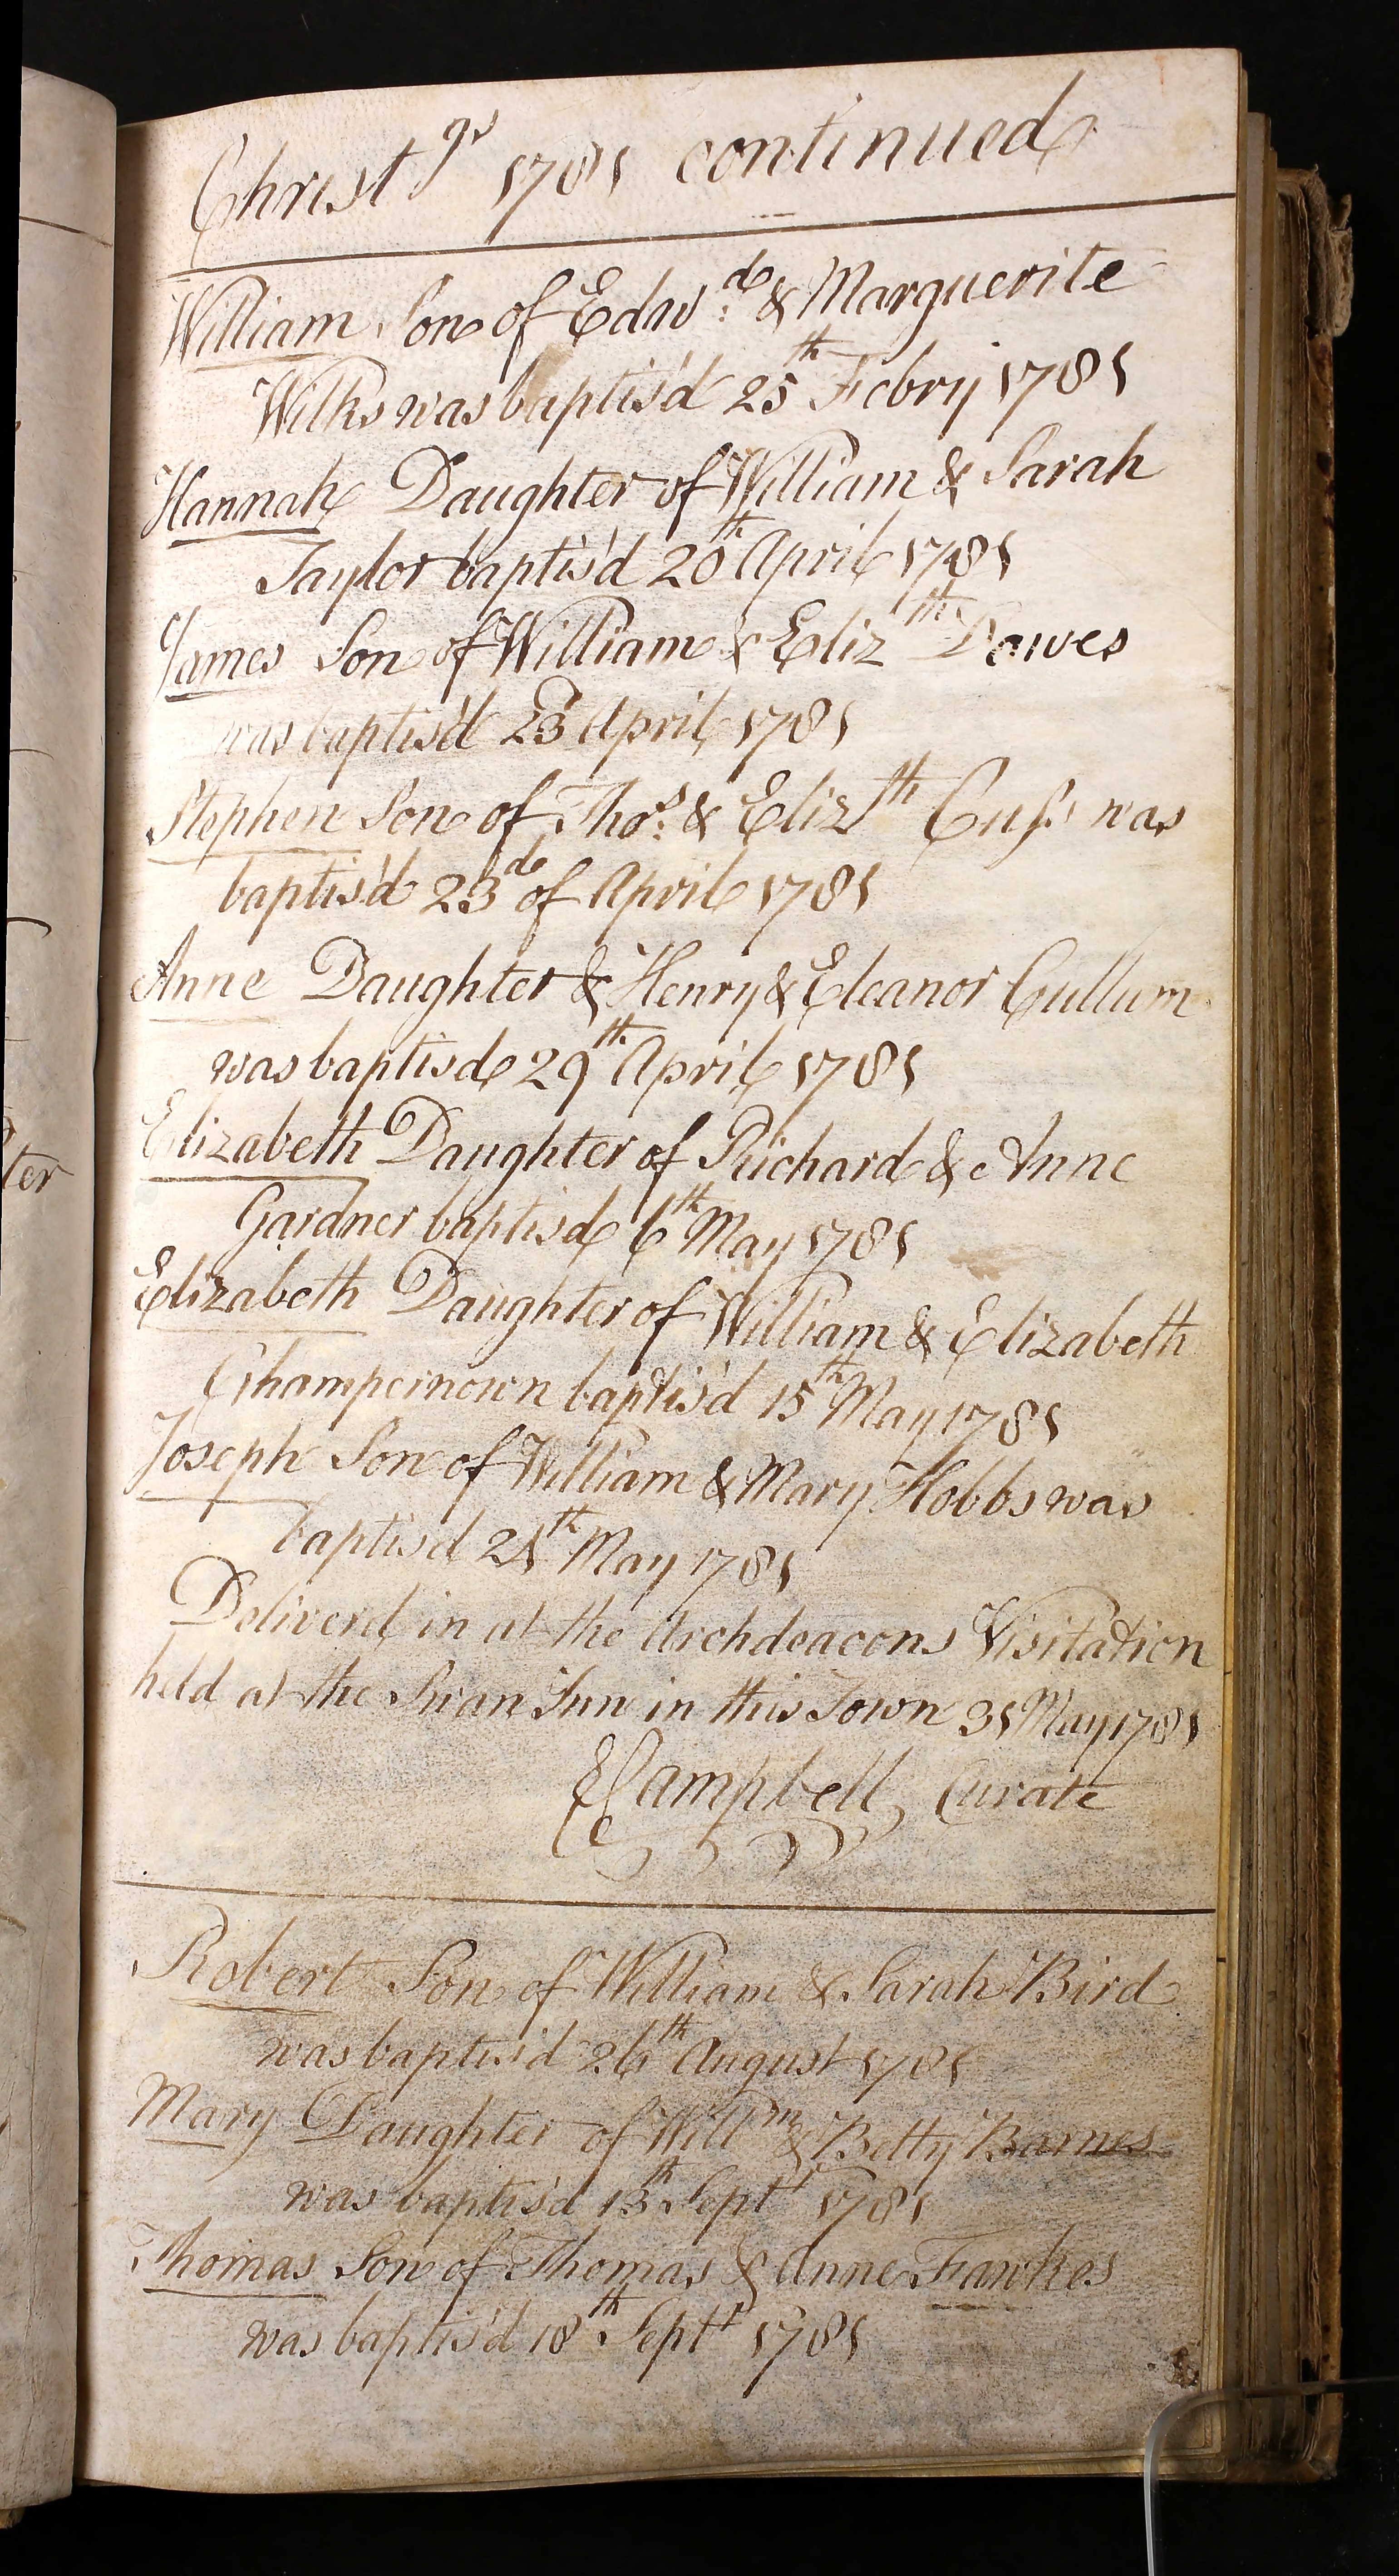 Christgs 1781 continued
William Son of Edwd. & Marguerite
Wilks was baptis'd 25th Febry 1781
Hannah Daughter of William & Sarah
Taylor baptis'd 20th April 1781
James Son of William & Elizth Dawes
was baptis'd 23d April 1781
Stephen Son of Thos. & Elizth Cuss was
baptis'd 23d of April 1781
Anne Daughter & Henry & Eleanor Cullum
was baptisd 29th April 1781
Elizabeth Daughter of Richard & Anne
Gardner baptisd 6th May 1781
Elizabeth Daughter of William & Elizabeth
Champernown baptis'd 15th May 1781
Joseph Son of William & Mary Hobbs was
baptis'd 21th May 1781
Deliverd in at the Archdeacons Visitation
held at the Swan Inn in this Town 31 May 1781
E Campbell Curate
Robert Son of William & Sarah Bird
was baptis'd 26th August 1781
Mary Daughter of Willm & Betty Barnes
was baptis'd 13th Septr 1781
Thomas Son of Thomas & Anne Fawkes
was baptis'd 18th Septr 1781
ter